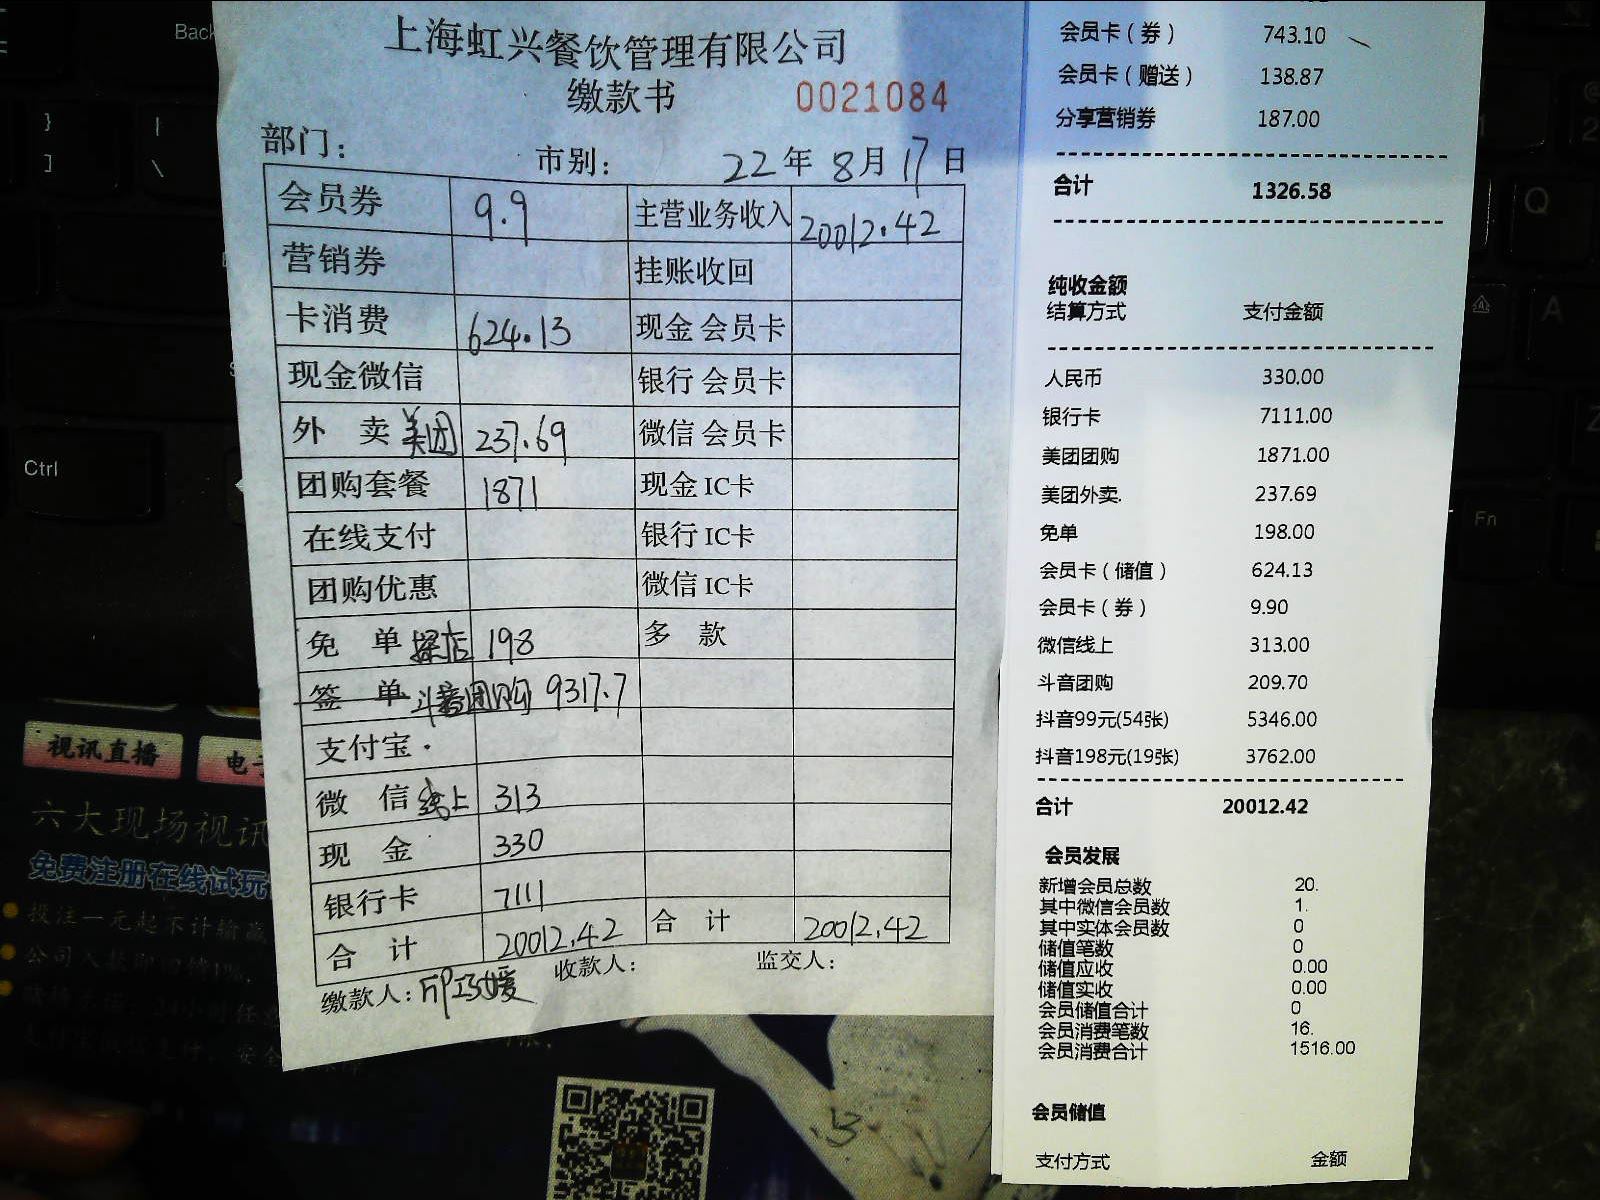 上海虹兴餐饮管理有限公司
缴款书 0021084
部门： 市别： 22年8月17日
会员券 9.9 主营业务收入 20012.42
营销券 挂账收回
卡消费 624.13 现金会员卡
现金微信 银行会员卡
外卖美团 237.69 微信会员卡
团购套餐 1871 现金IC卡
在线支付 银行IC卡
团购优惠 微信IC卡
免单探店 198 多款
签单 斗音团购 9317.7
支付宝
微信线上 313
现金 330
银行卡 7111
合计 20012.42 合计 20012.42
缴款人： 收款人： 监交人：
会员卡（券） 743.10
会员卡（赠送） 138.87
分享营销券 187.00
合计 1326.58
纯收金额
结算方式 支付金额
人民币 330.00
银行卡 7111.00
美团团购 1871.00
美团外卖. 237.69
免单 198.00
会员卡（储值） 624.13
会员卡（券） 9.90
微信线上 313.00
斗音团购 209.70
抖音99元(54张) 5346.00
抖音198元(19张) 3762.00
合计 20012.42
会员发展
新增会员总数 20.
其中微信会员数 1.
其中实体会员数 0
储值笔数 0
储值应收 0.00
储值实收 0.00
会员储值合计 0
会员消费笔数 16.
会员消费合计 1516.00
会员储值
支付方式 金额
Back
}
]
|
\
Ctrl
Q
A
Fn
视讯直播
六大现场视讯
免费注册在线试玩
投注一元起不计输赢